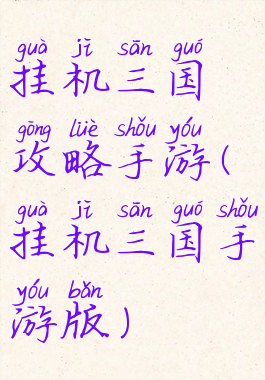 guà jī sān guó
挂机三国
gōng lüè shǒu yóu
攻略手游(
guà jī sān guó shǒu
挂机三国手
yóu bǎn
游版)